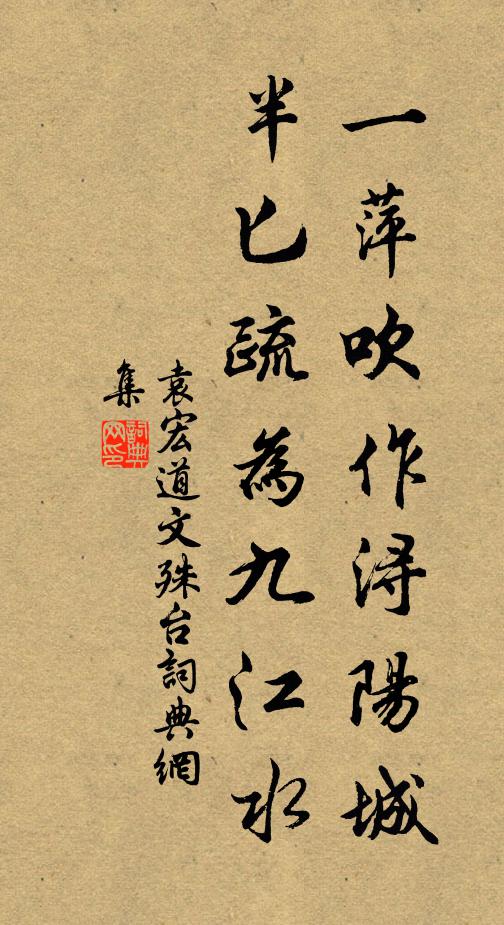 一萍吹作浔陽城
半已疏為九江水
袁宏道文殊台詞典網
集
詞典
网印